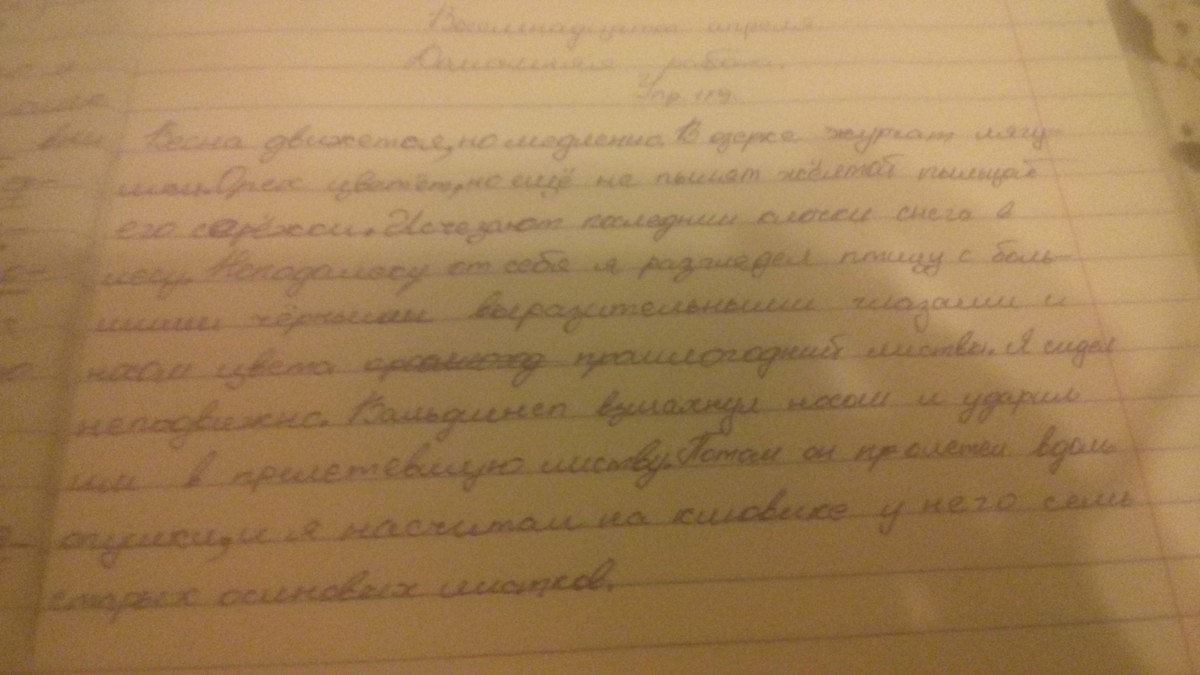 Восемнадцатое апреля.
Домашняя работа.
Упр. 119.
Весна движется, но медленно. В озерке журчат лягу-
шки. Орех цветёт, но ещё не пылят жёлтой пыльцой
его серёжки. Исчезают последнии клочки снега в
лесу. Неподалеку от себя я разгледел птицу с боль-
шими чёрными выразительными глазами и
носом цвета прошлогодний листвы. Я сидел
неподвижно. Вальдшнеп взмахнул носом и ударил
им в прелетевшую листву. Потом он пролетел вдоль
опушки, и я насчитал на клювике у него семь
старых осиновых листков.